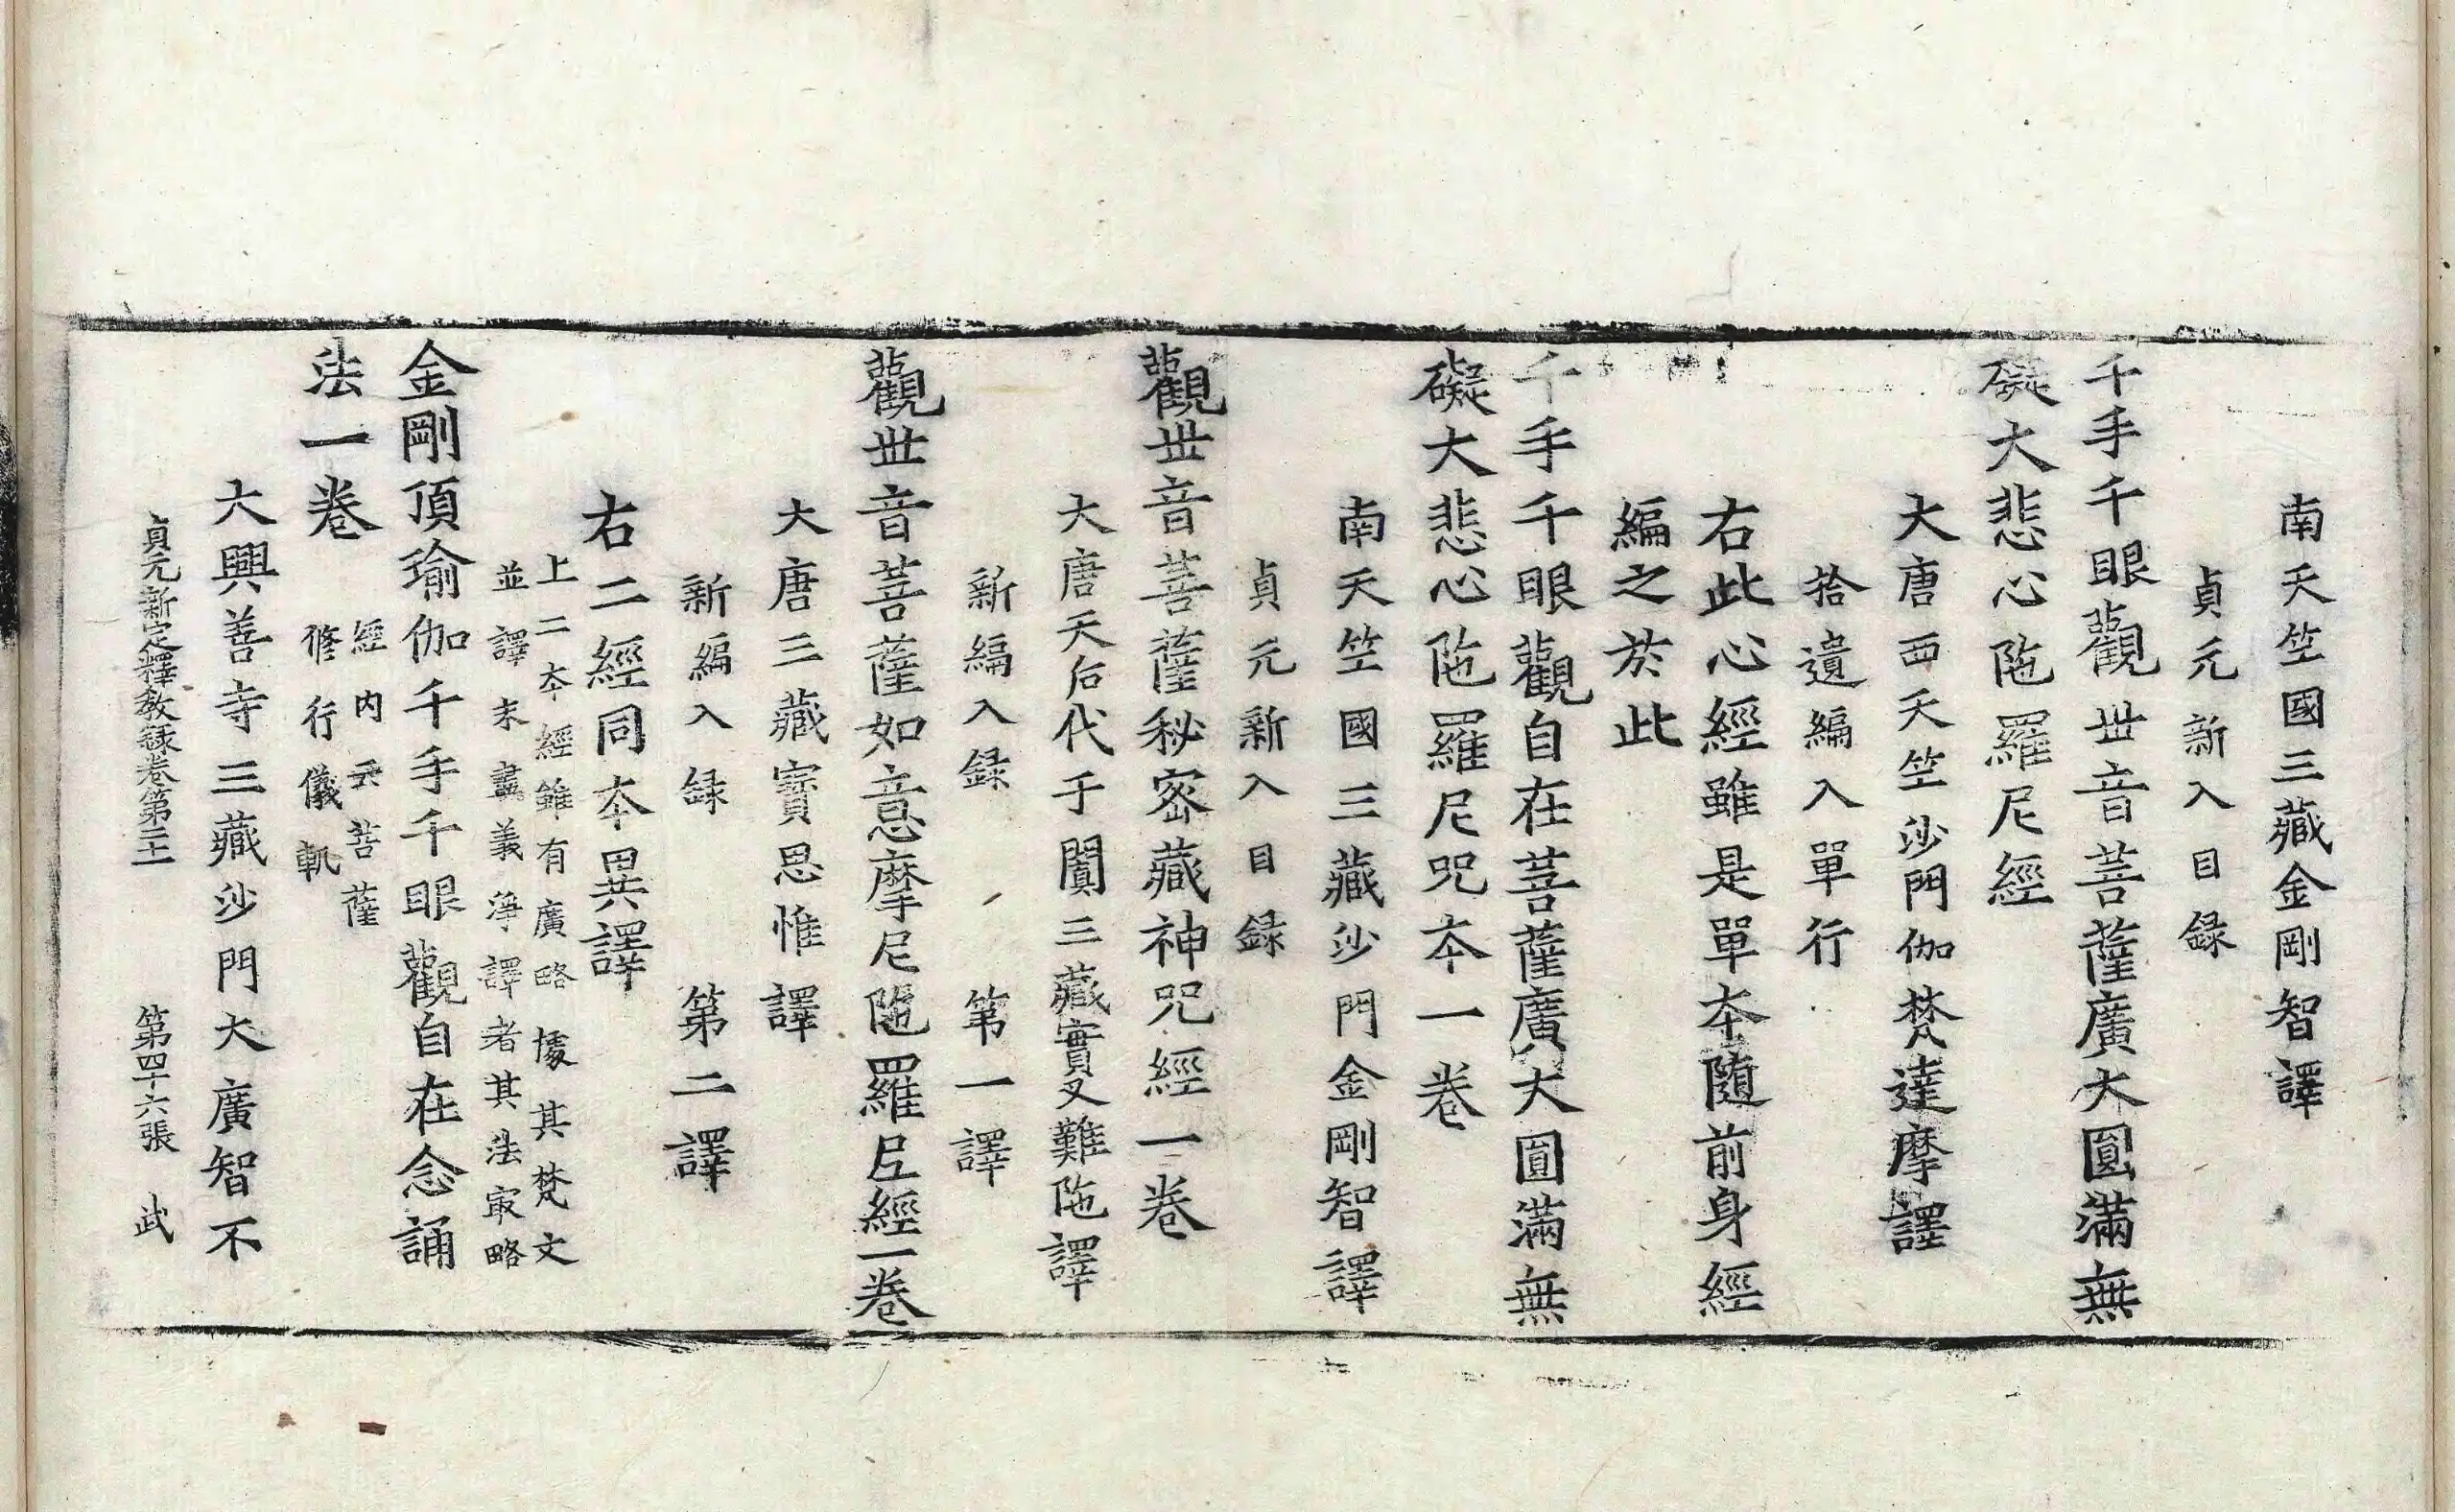 南天竺國三藏金剛智譯
貞元新入目録
千手千眼觀世音菩薩廣大圓滿無
礙大悲心陁羅尼經
大唐西天竺沙門伽梵達摩譯
拾遺編入單行
右此心經雖是單本隨前身經
編之於此
千手千眼觀自在菩薩廣大圓滿無
礙大悲心陁羅尼呪本一卷
南天竺國三藏沙門金剛智譯
貞元新入目録
觀世音菩薩秘密藏神呪經一卷
大唐天后代于闐三藏實叉難陁譯
新編入録 第一譯
觀世音菩薩如意摩尼陁羅尼經一卷
大唐三藏寶思惟譯
新編入録 第二譯
右二經同本異譯
上二本經雖有廣略據其梵文
並譯未盡義淨譯者其法㝡略
金剛頂瑜伽千手千眼觀自在念誦
法一卷
經内云菩薩
修行儀軌
大興善寺三藏沙門大廣智不
貞元新定釋教録卷第二十一 第四十六張 武